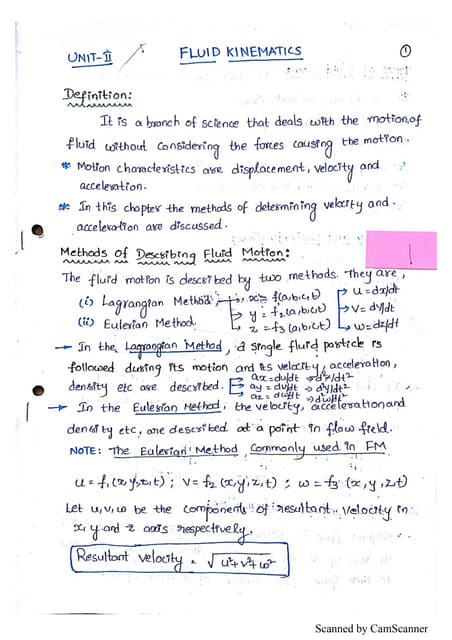 UNIT-II FLUID KINEMATICS 1
Definition:
It is a branch of science that deals with the motion of
fluid without considering the forces causing the motion.
* Motion characteristics are displacement, velocity and
acceleration.
* In this chapter the methods of determining velocity and
acceleration are discussed.
Methods of Describing Fluid Motion:
The fluid motion is described by two methods. They are,
(i) Lagrangian Method → x = f(a,b,c,t) → u = dx/dt
(ii) Eulerian Method. → y = f2(a,b,c,t) → v = dy/dt
→ z = f3(a,b,c,t) → w = dz/dt
→ In the Lagrangian Method, a single fluid particle is
followed during its motion and its velocity, acceleration,
density etc are described. → ax = du/dt → d²x/dt²
→ ay = dv/dt → d²y/dt²
→ az = dw/dt
→ In the Eulerian Method, the velocity, acceleration and
density etc, are described at a point in flow field.
NOTE: The Eulerian Method Commonly used in FM
u = f1(x,y,z,t) ; v = f2(x,y,z,t) ; w = f3(x,y,z,t)
Let u,v,w be the components of resultant velocity in
x, y and z axis respectively.
Resultant velocity = √u²+v²+w²
Scanned by CamScanner